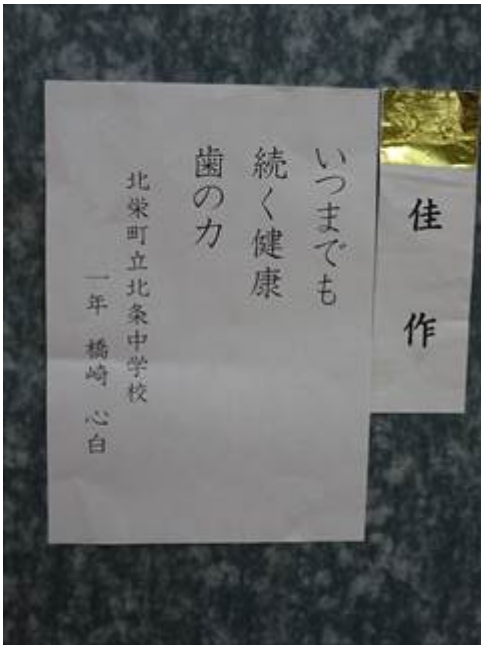 佳作
いつまでも
続く健康
歯の力
北栄町立北条中学校
一年 橋崎 心白